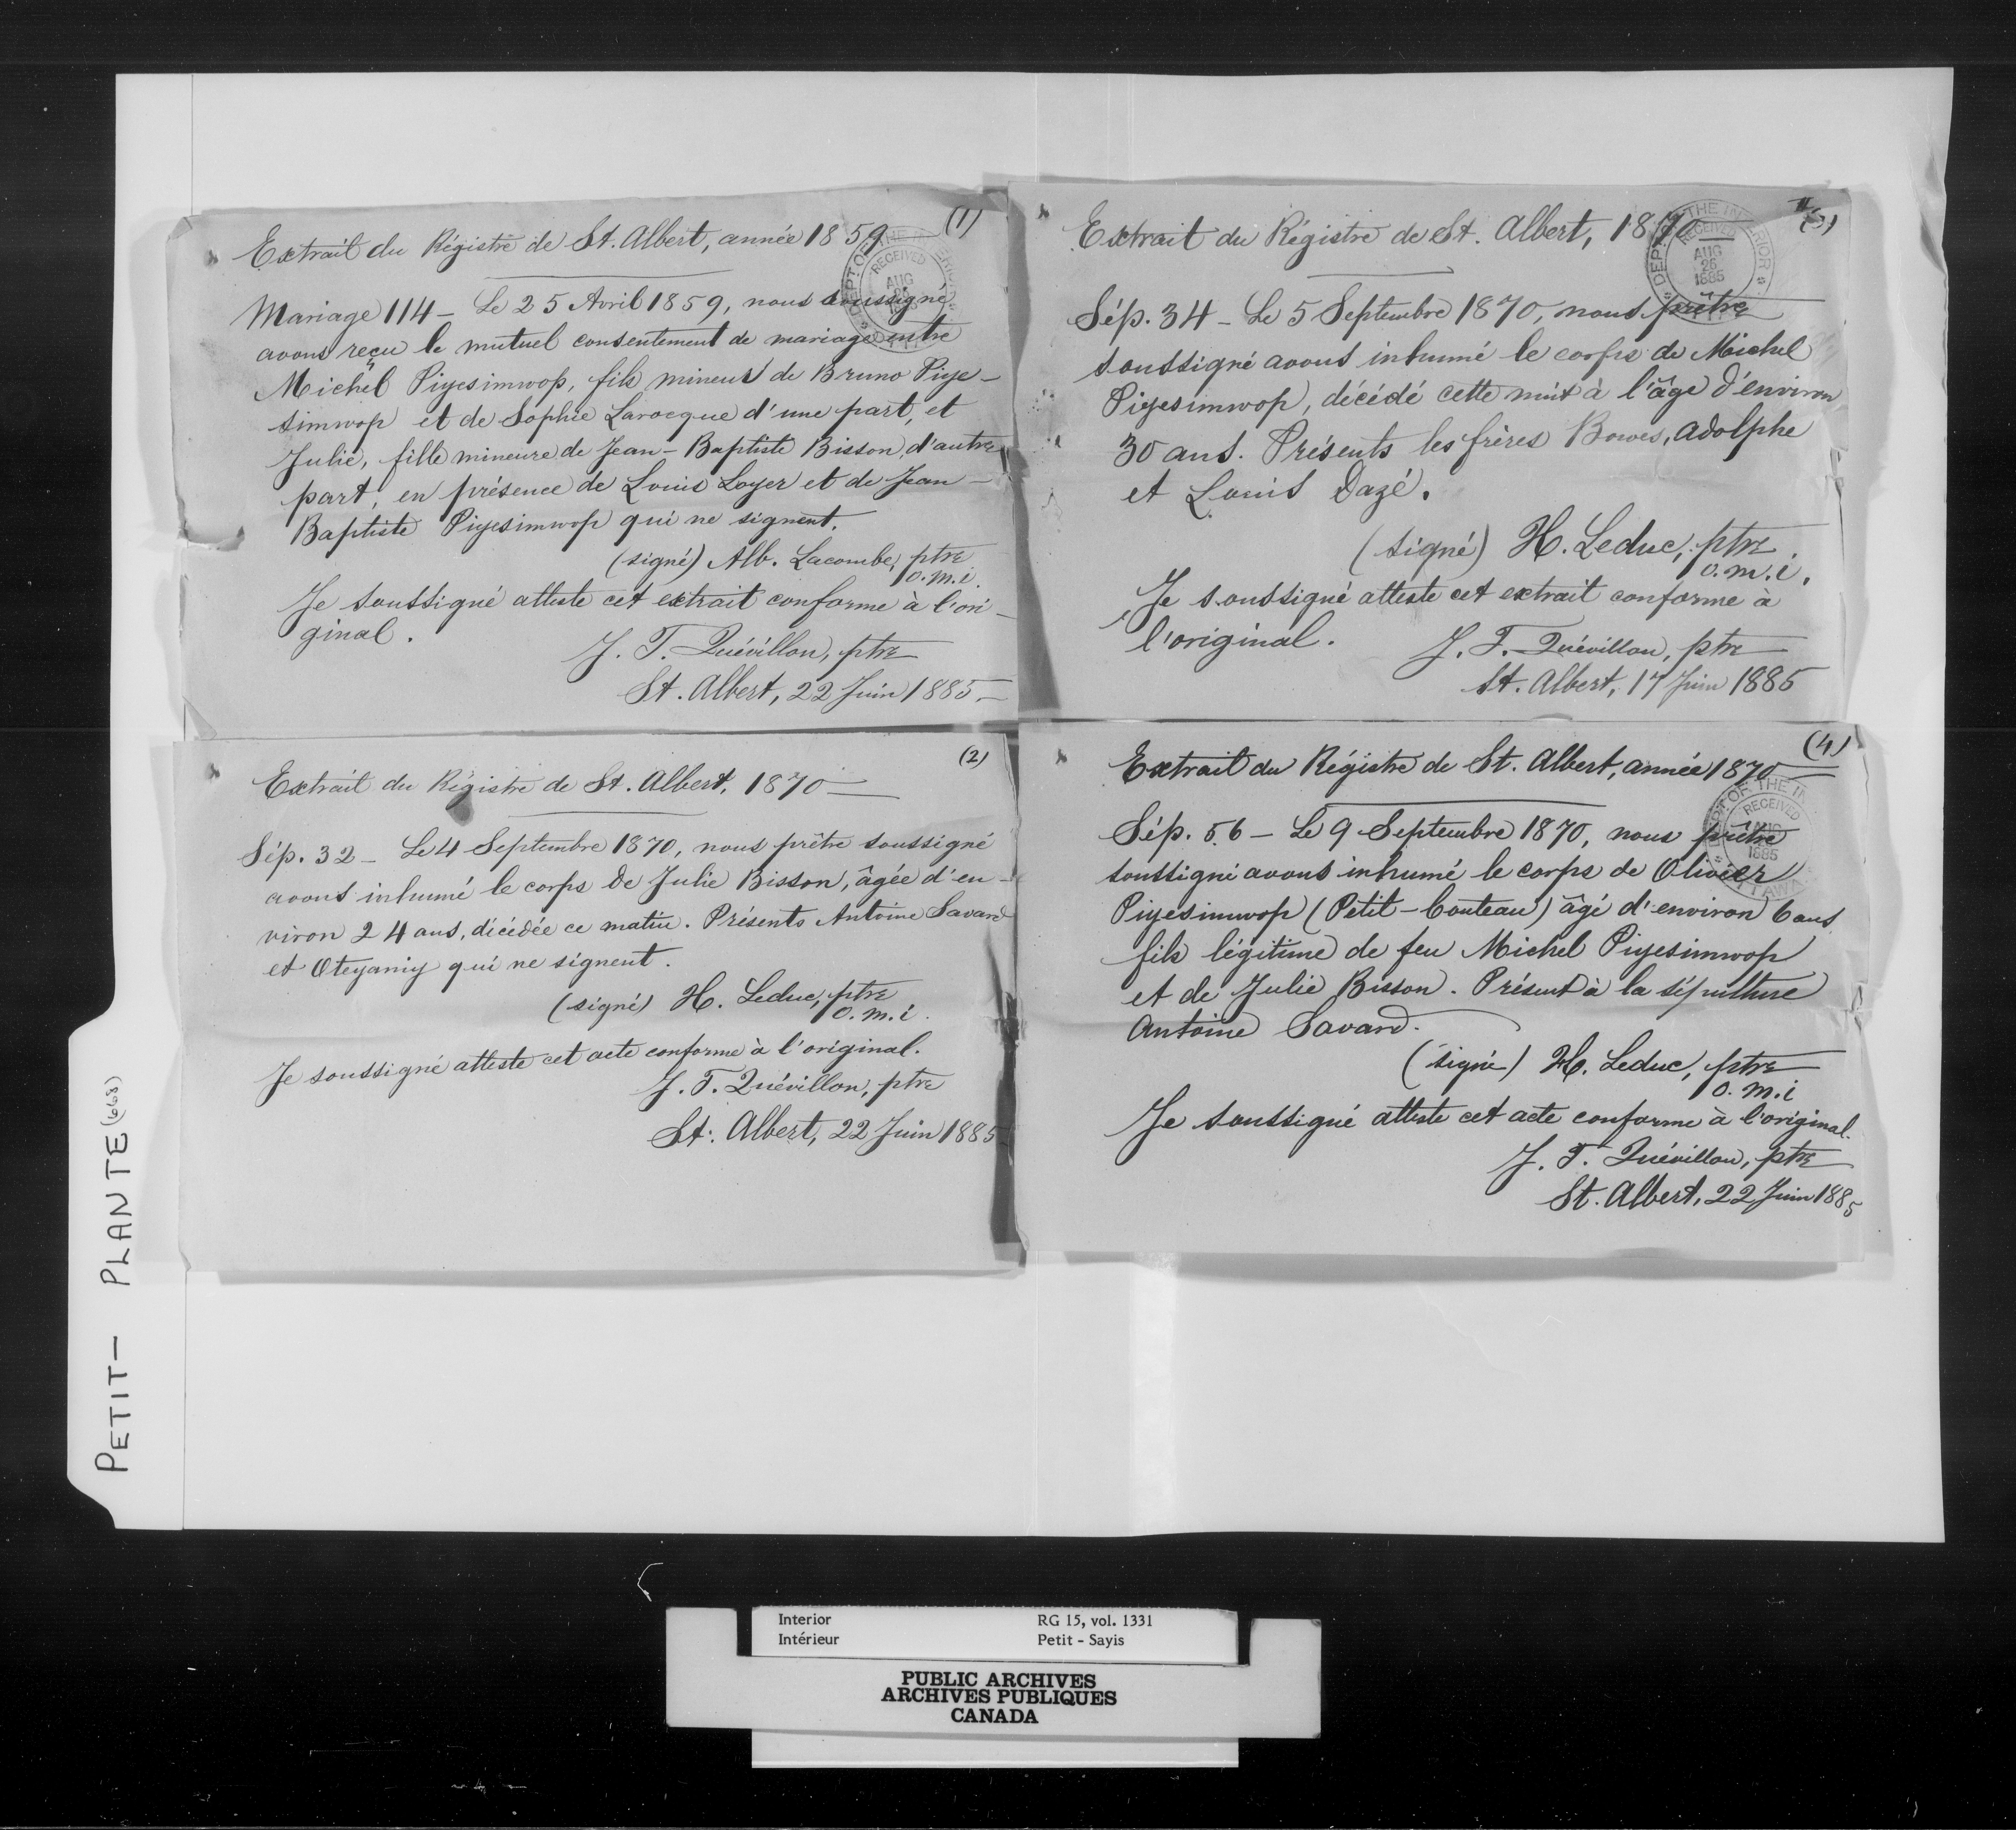 (1)
Extrait du Régistre de St. Albert, année 1859
Mariage 114 – Le 25 Avril 1859, nous soussigné
avons reçu le mutuel consentement de mariage entre
Michel Piyesimwop, fils mineur de Bruno Piye-
simwop et de Sophie Larocque d'une part, et
Julie, fille mineure de Jean-Baptiste Bisson, d'autre
part, en présence de Louis Loyer et de Jean-
Baptiste Piyesimwop qui ne signent.
(signé) Alb. Lacombe, ptre
o.m.i.
Je soussigné atteste cet extrait conforme à l'ori-
ginal.
J. T. Quévillon, ptre
St. Albert, 22 Juin 1885 –
DEPT. OF THE INTERIOR
RECEIVED
AUG
1885
(2)
Extrait du Régistre de St. Albert, 1870 –
Sép. 32 – Le 4 Septembre 1870, nous prêtre soussigné
avons inhumé le corps de Julie Bisson, âgée d'en-
viron 24 ans, décédée ce matin. Présents Antoine Savard
et Oteyamiy qui ne signent.
(signé) H. Leduc, ptre
o.m.i.
Je soussigné atteste cet acte conforme à l'original.
J. T. Quévillon, ptre
St. Albert, 22 Juin 1885
(3)
Extrait du Régistre de St. Albert, 1870 –
Sép. 34 – Le 5 Septembre 1870, nous prêtre
soussigné avons inhumé le corps de Michel
Piyesimwop, décédé cette nuit à l'âge d'environ
30 ans. Présents les frères Bowes, Adolphe
et Louis Dazé.
(signé) H. Leduc, ptre
o.m.i.
Je soussigné atteste cet extrait conforme à
l'original.
J. T. Quévillon, ptre
St. Albert, 17 Juin 1885
DEPT. OF THE INTERIOR
RECEIVED
AUG
26
1885
(4)
Extrait du Régistre de St. Albert, année 1870 –
Sép. 56 – Le 9 Septembre 1870, nous prêtre
soussigné avons inhumé le corps de Olivier
Piyesimwop (Petit-Couteau) âgé d'environ 6 ans
fils légitime de feu Michel Piyesimwop
et de Julie Bisson. Présent à la sépulture
Antoine Savard.
(signé) H. Leduc, ptre
o.m.i
Je soussigné atteste cet acte conforme à l'original.
J. T. Quévillon, ptre
St. Albert, 22 Juin 1885
DEPT. OF THE IN
RECEIVED
AUG
1885
OTTAWA
PETIT – PLANTE (663)
Interior
Intérieur
RG 15, vol. 1331
Petit - Sayis
PUBLIC ARCHIVES
ARCHIVES PUBLIQUES
CANADA